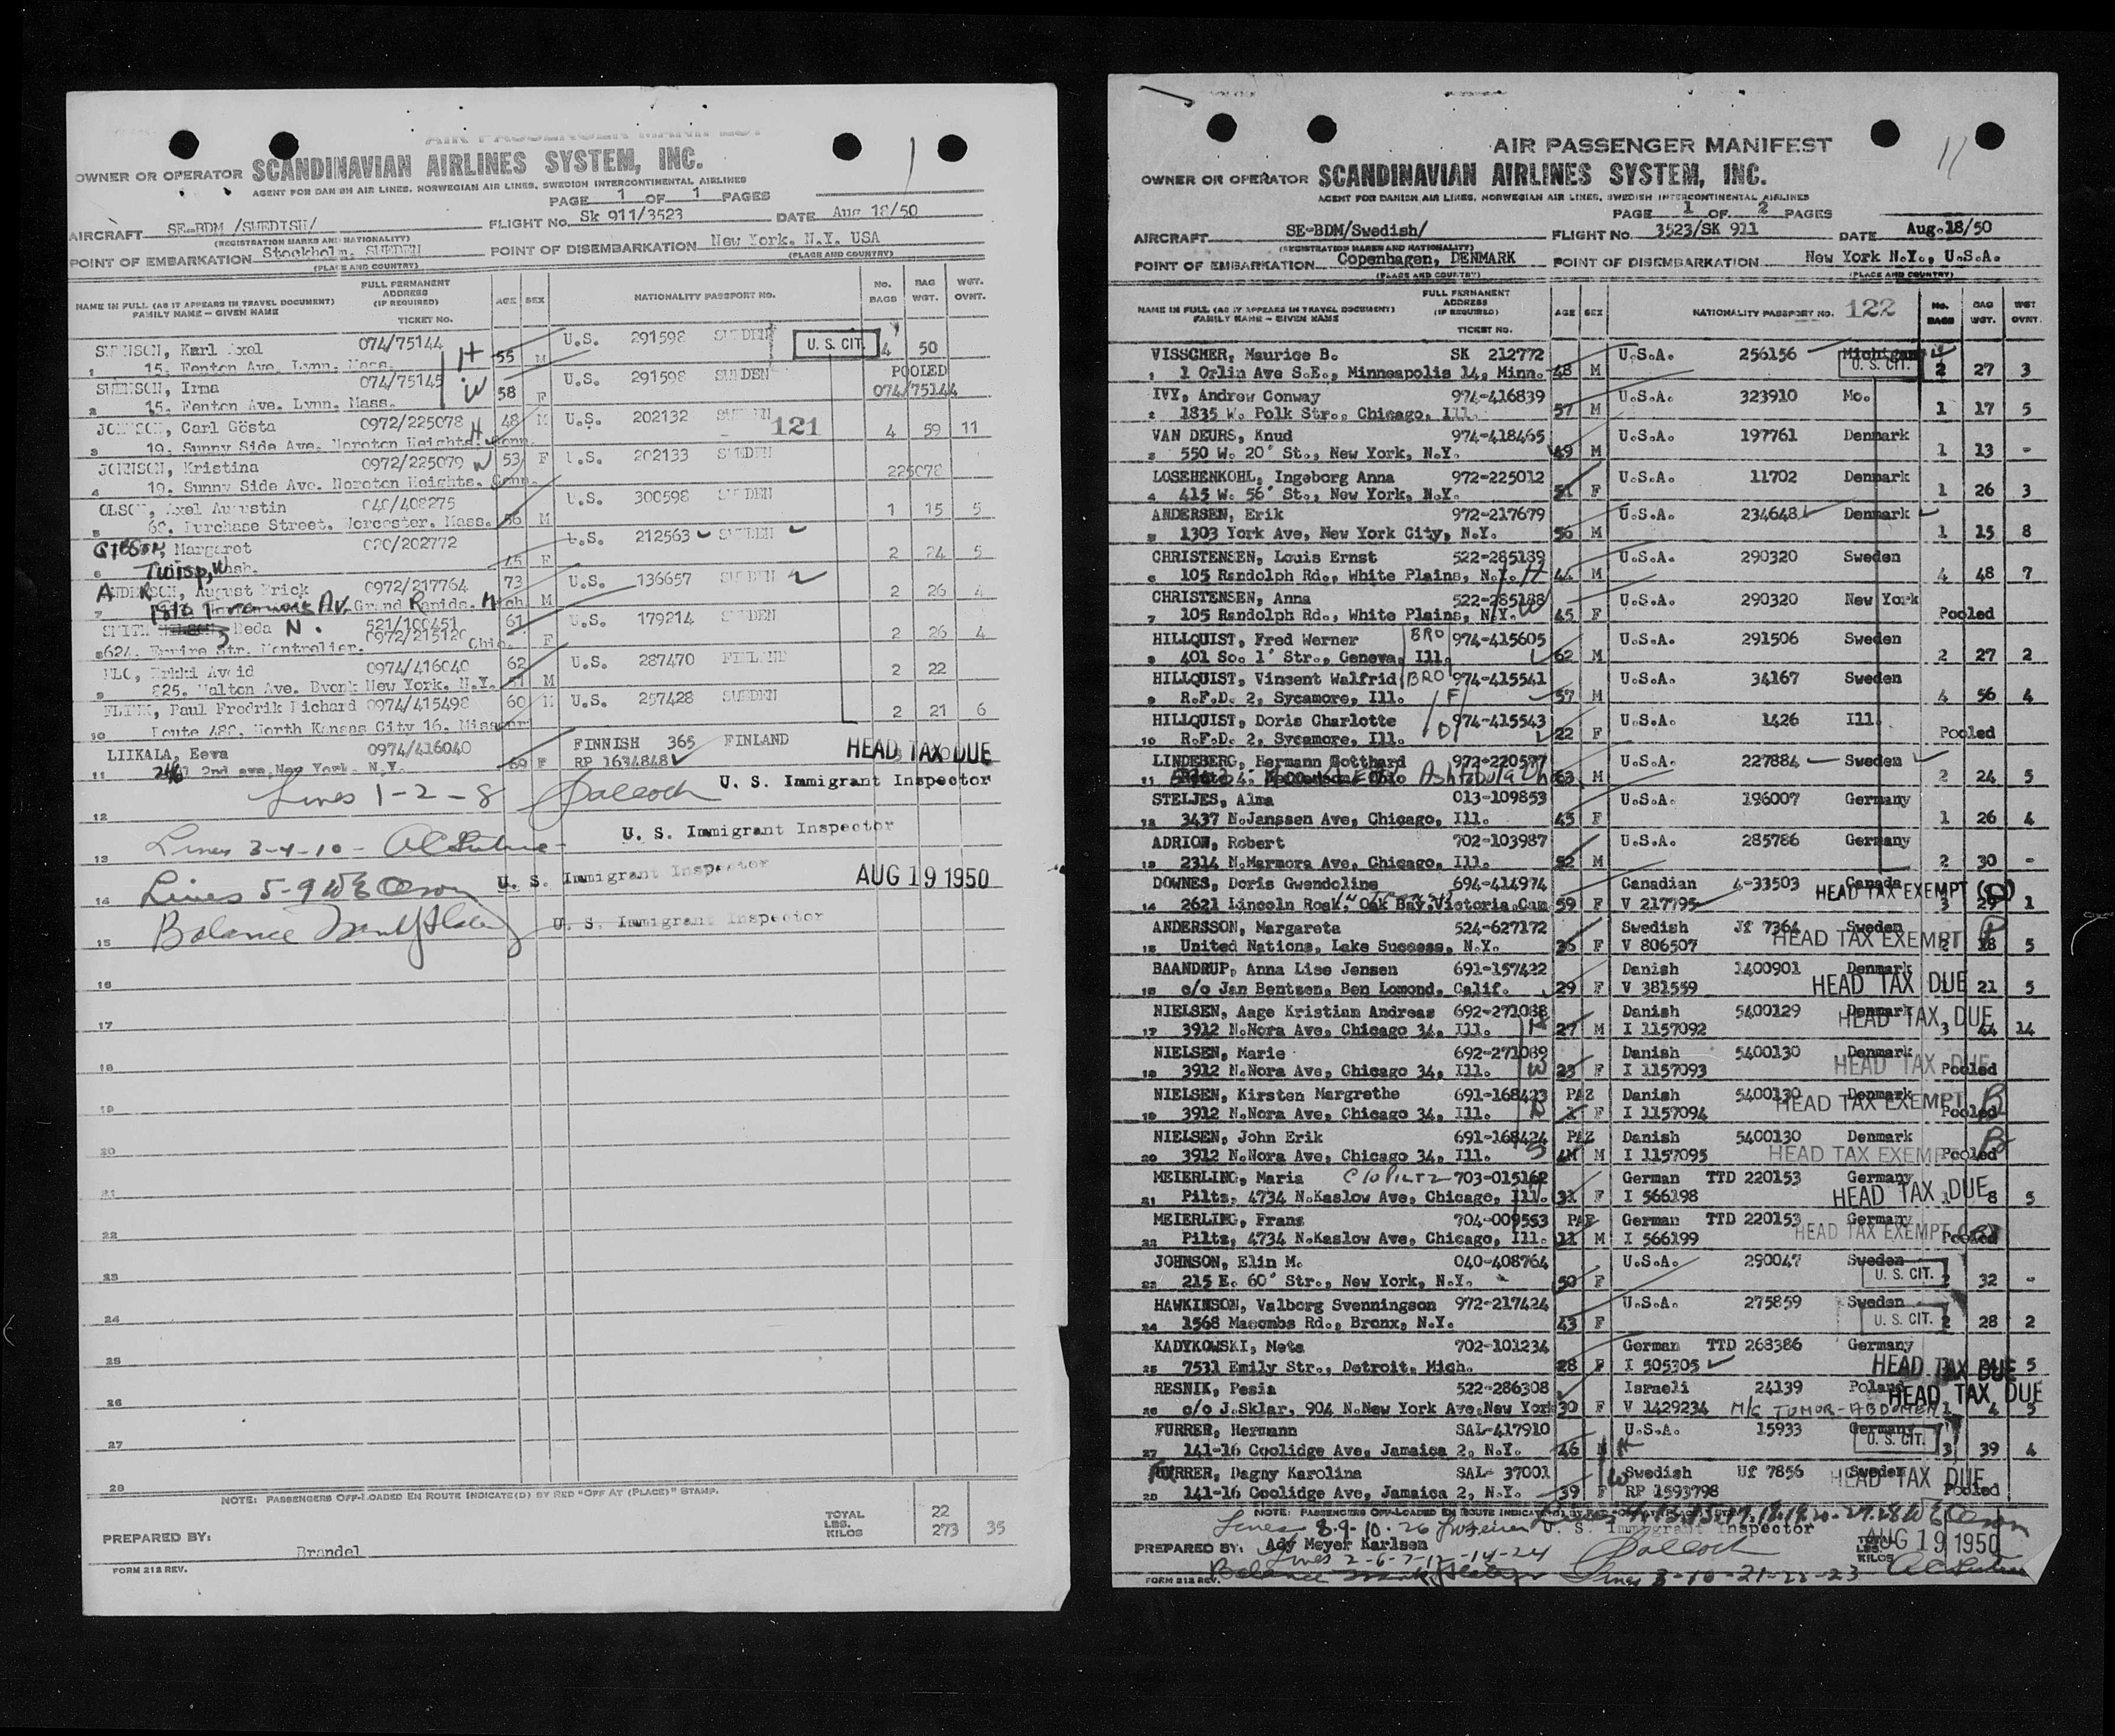 AIR PASSENGER MANIFEST
OWNER OR OPERATOR SCANDINAVIAN AIRLINES SYSTEM, INC.
AGENT FOR DANISH AIR LINES, NORWEGIAN AIR LINES, SWEDISH INTERCONTINENTAL AIRLINES
PAGE 1 OF 1 PAGES
AIRCRAFT SE-BDM /SWEDISH/ FLIGHT No. Sk 911/3523 DATE Aug 18/50
(REGISTRATION MARKS AND NATIONALITY)
POINT OF EMBARKATION Stockholm, SWEDEN POINT OF DISEMBARKATION New York, N.Y. USA
(PLACE AND COUNTRY) (PLACE AND COUNTRY)
NAME IN FULL (AS IT APPEARS IN TRAVEL DOCUMENT) FAMILY NAME – GIVEN NAME FULL PERMANENT ADDRESS (IF REQUIRED) TICKET No. AGE SEX NATIONALITY PASSPORT NO. NO. BAGS BAG WGT. WGT. OVNT.
SWENSON, Karl Axel 074/75144 H 55 M U.S. 291598 SWEDEN U. S. CIT. 4 50
1 15, Fenton Ave. Lynn, Mass.
SWENSON, Irma 074/75145 W 58 F U.S. 291598 SWEDEN POOLED 074/75144
2 15, Fenton Ave. Lynn, Mass.
JOHNSON, Carl Gösta 0972/225078 H 48 M U.S. 202132 SWEDEN 121 4 59 11
3 19, Sunny Side Ave. Noroton Heights, Conn.
JOHNSON, Kristina 0972/225079 W 53 F U.S. 202133 SWEDEN 225078
4 19, Sunny Side Ave. Noroton Heights, Conn.
OLSON, Axel Augustin 040/408275 56 M U.S. 300598 SWEDEN 1 15 5
5 68, Purchase Street, Worcester, Mass.
Margaret 020/202772 45 F U.S. 212563 SWEDEN 2 24 5
6 Twisp, Wash.
ANDERSON, August Erick 0972/217764 73 M U.S. 136657 SWEDEN 2 26 4
7 Av. Grand Rapids, Mich
SMITH Heda N. 521/100451 61 F U.S. 179214 SWEDEN 2 26 4
8 624, Empire Str. Montpelier, Ohio. 0972/215120
Erkki Avid 0974/416040 62 M U.S. 287470 FINLAND 2 22
9 825, Walton Ave. Bronk New York, N.Y.
FLINK, Paul Fredrik Richard 0974/415498 60 M U.S. 257428 SWEDEN 2 21 6
10 Route 480, North Kansas City 16, Missouri
LIIKALA, Eeva 0974/416040 69 F FINNISH 365 FINLAND HEAD TAX DUE
11 2nd ave, New York, N.Y. RP 1634848
Lines 1-2-8 U. S. Immigrant Inspector
12
U. S. Immigrant Inspector
13 Lines 3-4-10 -
U. S. Immigrant Inspector AUG 19 1950
14 Lines 5-9 W E Olson
15 Balance U. S. Immigrant Inspector
16
17
18
19
20
21
22
23
24
25
26
27
28
NOTE: PASSENGERS OFF-LOADED EN ROUTE INDICATE(D) BY RED "OFF AT (PLACE)" STAMP.
PREPARED BY: Brandel TOTAL LBS. KILOS 22 273 35
FORM 212 REV.
AIR PASSENGER MANIFEST 11
OWNER OR OPERATOR SCANDINAVIAN AIRLINES SYSTEM, INC.
AGENT FOR DANISH AIR LINES, NORWEGIAN AIR LINES, SWEDISH INTERCONTINENTAL AIRLINES
PAGE 1 OF 2 PAGES
AIRCRAFT SE-BDM/Swedish/ FLIGHT No. 3523/SK 911 DATE Aug.18/50
(REGISTRATION MARKS AND NATIONALITY)
POINT OF EMBARKATION Copenhagen, DENMARK POINT OF DISEMBARKATION New York N.Y., U.S.A.
(PLACE AND COUNTRY) (PLACE AND COUNTRY)
NAME IN FULL (AS IT APPEARS IN TRAVEL DOCUMENT) FAMILY NAME – GIVEN NAME FULL PERMANENT ADDRESS (IF REQUIRED) TICKET NO. AGE SEX NATIONALITY PASSPORT NO. 122 No. BAGS BAG WGT. WGT OVNT.
VISSCHER, Maurice B. SK 212772 U.S.A. 256156 Michigan
1 1 Orlin Ave S.E., Minneapolis 14, Minn. 48 M U. S. CIT. 2 27 3
IVY, Andrew Conway 974-416839 U.S.A. 323910 Mo.
2 1835 W. Polk Str., Chicago, Ill. 57 M 1 17 5
VAN DEURS, Knud 974-418465 U.S.A. 197761 Denmark
3 550 W. 20' St., New York, N.Y. 49 M 1 13 -
LOSEHENKOHL, Ingeborg Anna 972-225012 U.S.A. 11702 Denmark
4 415 W. 56' St., New York, N.Y. 51 F 1 26 3
ANDERSEN, Erik 972-217679 U.S.A. 234648 Denmark
5 1303 York Ave, New York City, N.Y. 56 M 1 15 8
CHRISTENSEN, Louis Ernst 522-285189 U.S.A. 290320 Sweden
6 105 Randolph Rd., White Plains, N.Y. H 44 M 4 48 7
CHRISTENSEN, Anna 522-285188 U.S.A. 290320 New York
7 105 Randolph Rd., White Plains, N.Y. W 45 F Pooled
HILLQUIST, Fred Werner BRO 974-415605 U.S.A. 291506 Sweden
8 401 So. 1' Str., Geneva, Ill. 62 M 2 27 2
HILLQUIST, Vincent Walfrid BRO 974-415541 U.S.A. 34167 Sweden
9 R.F.D. 2, Sycamore, Ill. F 57 M 4 56 4
HILLQUIST, Doris Charlotte 974-415543 U.S.A. 1426 Ill.
10 R.F.D. 2, Sycamore, Ill. D 22 F Pooled
LINDEBERG, Hermann Gotthard 972-220577 U.S.A. 227884 Sweden
11 Ohio Ashtabula 63 M 2 24 5
STELJES, Alma 013-109853 U.S.A. 196007 Germany
12 3437 N.Janssen Ave, Chicago, Ill. 45 F 1 26 4
ADRION, Robert 702-103987 U.S.A. 285786 Germany
13 2314 N.Marmora Ave, Chicago, Ill. 52 M 2 30 -
DOWNES, Doris Gwendoline 694-414974 Canadian 4-33503 Canada HEAD TAX EXEMPT
14 2621 Lincoln Road, Oak Bay, Victoria, Can 59 F V 217795 3 29 1
ANDERSSON, Margareta 524-627172 Swedish Jf 7364 Sweden
15 United Nations, Lake Success, N.Y. 36 F V 806507 HEAD TAX EXEMPT 18 5
BAANDRUP, Anna Lise Jensen 691-157422 Danish 1400901 Denmark
16 c/o Jan Bentzen, Ben Lomond, Calif. 29 F V 381559 HEAD TAX DUE 21 5
NIELSEN, Aage Kristian Andreas 692-271088 Danish 5400129 Denmark
17 3912 N.Nora Ave, Chicago 34, Ill. H 27 M I 1157092 HEAD TAX DUE 3 44 14
NIELSEN, Marie 692-271089 Danish 5400130 Denmark
18 3912 N.Nora Ave, Chicago 34, Ill. W 25 F I 1157093 HEAD TAX DUE Pooled
NIELSEN, Kirsten Margrethe 691-168423 PAZ Danish 5400130 Denmark
19 3912 N.Nora Ave, Chicago 34, Ill. D 1 F I 1157094 HEAD TAX EXEMPT Pooled B
NIELSEN, John Erik 691-168424 PAZ Danish 5400130 Denmark
20 3912 N.Nora Ave, Chicago 34, Ill. S 4M M I 1157095 HEAD TAX EXEMPT Pooled B
MEIERLING, Maria C/O PILTZ 703-015162 German TTD 220153 Germany
21 Piltz, 4734 N.Kaslow Ave, Chicago, Ill. 31 F I 566198 HEAD TAX DUE 1 8 5
MEIERLING, Frans 704-009553 German TTD 220153 Germany
22 Piltz, 4734 N.Kaslow Ave, Chicago, Ill. 11 M I 566199 HEAD TAX EXEMPT Pooled
JOHNSON, Elin M. 040-408764 U.S.A. 290047 Sweden
23 215 E. 60' Str., New York, N.Y. 50 F U. S. CIT. 2 32 -
HAWKINSON, Valborg Svenningson 972-217424 U.S.A. 275859 Sweden
24 1568 Macombs Rd., Bronx, N.Y. 43 F U. S. CIT. 2 28 2
KADYKOWSKI, Meta 702-101234 German TTD 268386 Germany
25 7531 Emily Str., Detroit, Mich. 28 F I 505305 HEAD TAX DUE 5
RESNIK, Pesia 522-286308 Israeli 24139 Poland HEAD TAX DUE
26 c/o J.Sklar, 904 N.New York Ave, New York 30 F V 1429234 M/C TUMOR-ABDOMEN 1 4 5
FURRER, Hermann SAL-417910 U.S.A. 15933 Germany
27 141-16 Coolidge Ave, Jamaica 2, N.Y. 46 M H U. S. CIT. 3 39 4
FURRER, Dagny Karolina SAL- 37001 W Swedish Uf 7856 Sweden
28 141-16 Coolidge Ave, Jamaica 2, N.Y. 39 F RP 1593798 HEAD TAX DUE Pooled
NOTE: PASSENGERS OFF-LOADED EN ROUTE INDICATE(D) BY RED
Lines 8-9-10-26 U. S. Immigrant Inspector
PREPARED BY: Ady Meyer Karlsen TOTAL LBS. KILOS AUG 19 1950
Lines 2-6-7-12-14-24
FORM 212 REV. Balance